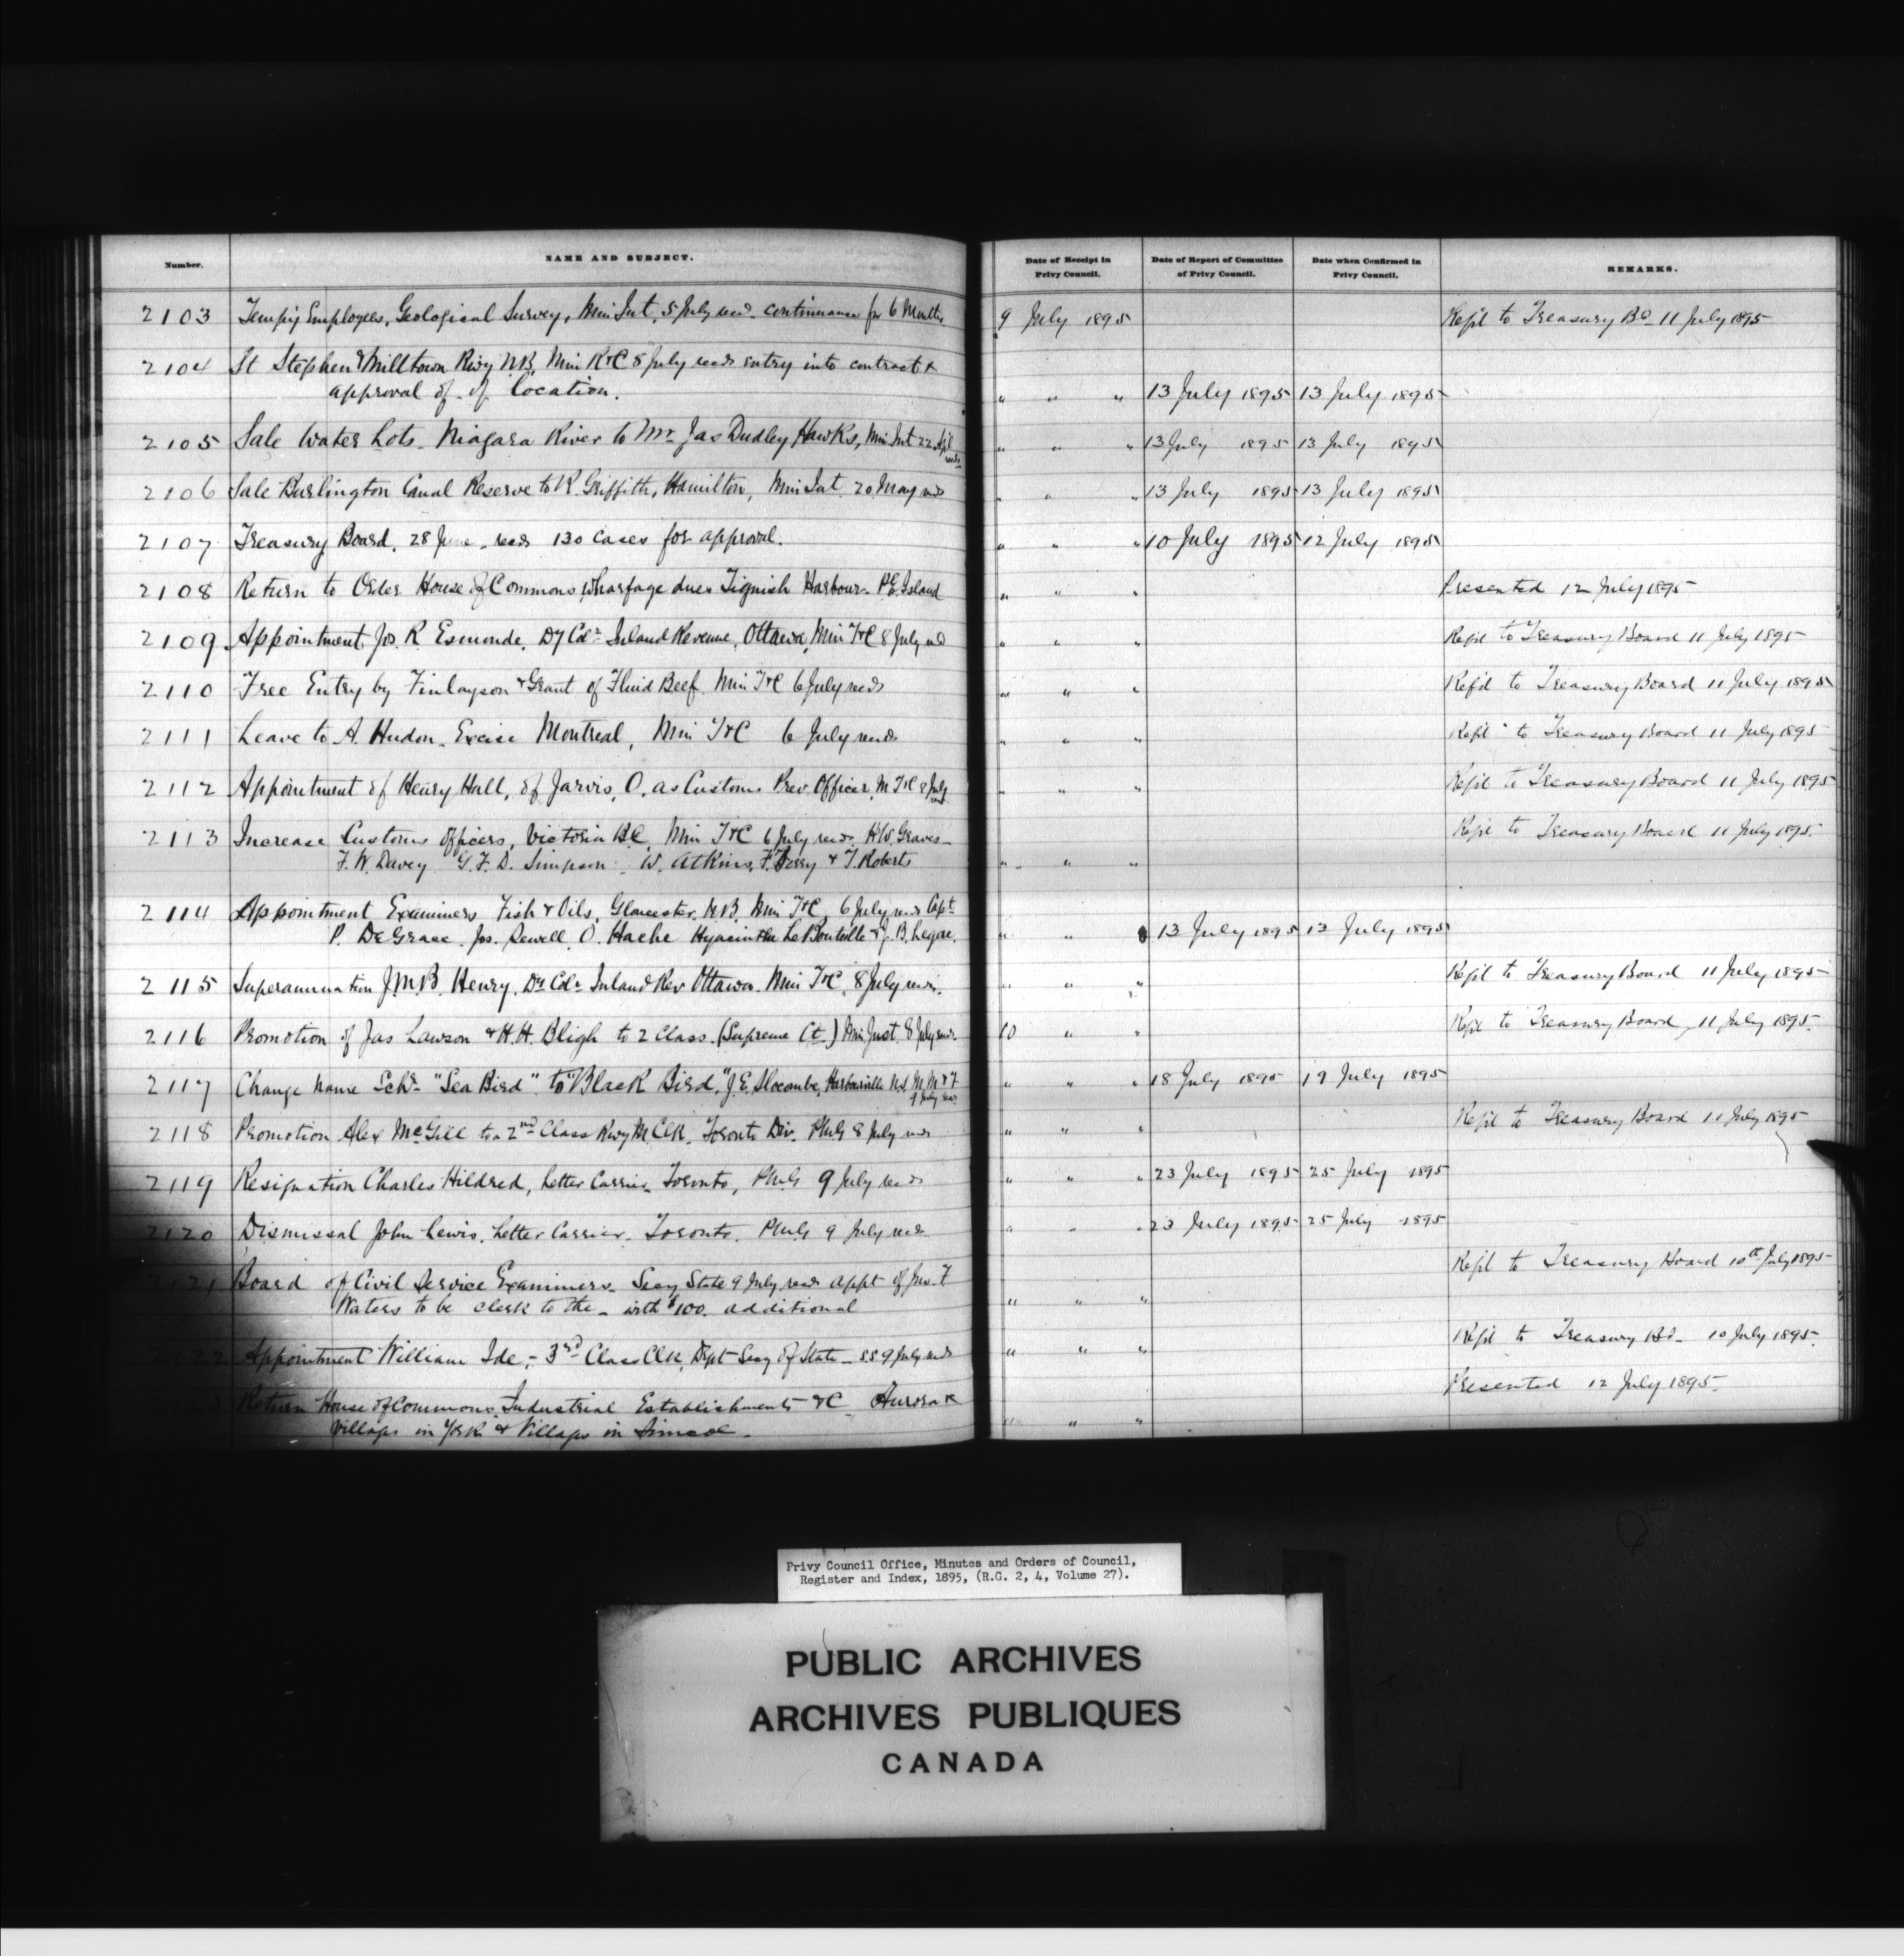 Number. NAME AND SUBJECT. Date of Receipt in Privy Council. Date of Report of Committee of Privy Council. Date when Confirmed in Privy Council. REMARKS.
2103 Tempy Employees, Geological Survey, Min Int, 5 July recd. continuance for 6 Months 9 July 1895 Refd to Treasury Bd 11 July 1895
2104 St Stephen & Milltown Rwy NB, Min R&C 8 July recds entry into contract &
approval of - of location. " " " 13 July 1895 13 July 1895
2105 Sale Water Lots - Niagara River to Mr Jas Dudley Hawks, Min Int 22 Apl recds " " " 13 July 1895 13 July 1895
2106 Sale Burlington Canal Reserve to R. Griffith, Hamilton, Min Int 20 May recds " " " 13 July 1895 13 July 1895
2107 Treasury Board, 28 June - recds 130 cases for approval. " " " 10 July 1895 12 July 1895
2108 Return to Order House of Commons, Wharfage dues Tignish Harbour - P.E. Island " " " Presented 12 July 1895
2109 Appointment Jos. R Esmonde, Dy Colr Inland Revenue, Ottawa, Min T&C 8 July recd " " " Refd to Treasury Board 11 July 1895
2110 Free Entry by Finlayson & Grant of Fluid Beef. Min T&C 6 July recds " " " Refd to Treasury Board 11 July 1895
2111 Leave to A. Hudon - Excise Montreal, Min T&C 6 July recds " " " Refd to Treasury Board 11 July 1895
2112 Appointment of Henry Hall, of Jarvis, O. as Customs Prev. Officer, M T&C 8 July recd " " " Refd to Treasury Board 11 July 1895
2113 Increase Customs Officers, Victoria BC, Min T&C 6 July recds. H.W. Graves - Refd to Treasury Board 11 July 1895.
F. W. Davey G. F. D. Simpson - W. Atkins, F. Berry & T. Roberts " " "
2114 Appointment Examiners Fish & Oils, Gloucester, N.B. Min T&C, 6 July recds Capt
P. DeGrace. Jos. Sewell, O. Hache Hyacinthe Le Bouteille & J. B. Legere. " " 13 July 1895 13 July 1895
2115 Superannuation J.M.B. Henry, Dy Colr Inland Rev Ottawa - Min T&C, 8 July recds. " " " Refd to Treasury Board 11 July 1895
2116 Promotion of Jas Lawson & H.H. Bligh to 2 Class. (Supreme Ct.) Min Just. 8 July recds. 10 " " Refd to Treasury Board, 11 July 1895.
2117 Change name Schr - "Sea Bird" to "Black Bird," J.E. Slocombe, Harbourville N.S. M.M & F 9 July recds " " " 18 July 1895 19 July 1895
2118 Promotion Alex McGill to a 2nd Class Rwy M. Clk. Toronto Div. PMG 8 July recds " " " Refd to Treasury Board 11 July 1895
2119 Resignation Charles Hildred, Letter Carrier - Toronto, PMG 9 July recds " " " 23 July 1895 25 July 1895
2120 Dismissal John Lewis, Letter Carrier - Toronto. PMG 9 July recds " " " 23 July 1895 25 July 1895
2121 Board of Civil Service Examiners - Secy State 9 July recds appt of Jno. F Refd to Treasury Board 10th July 1895
Waters to be clerk to the - with $100. additional " " "
2122 Appointment William Ide - 3rd Class Clk, Dept Secy of State - SS 9 July recds " " " Refd to Treasury Bd - 10 July 1895.
Return House of Commons, Industrial Establishments &C Aurora & Presented 12 July 1895.
Villages in York & Villages in Simcoe - " " "
Privy Council Office, Minutes and Orders of Council,
Register and Index, 1895, (R.G. 2, 4, Volume 27).
PUBLIC ARCHIVES
ARCHIVES PUBLIQUES
CANADA